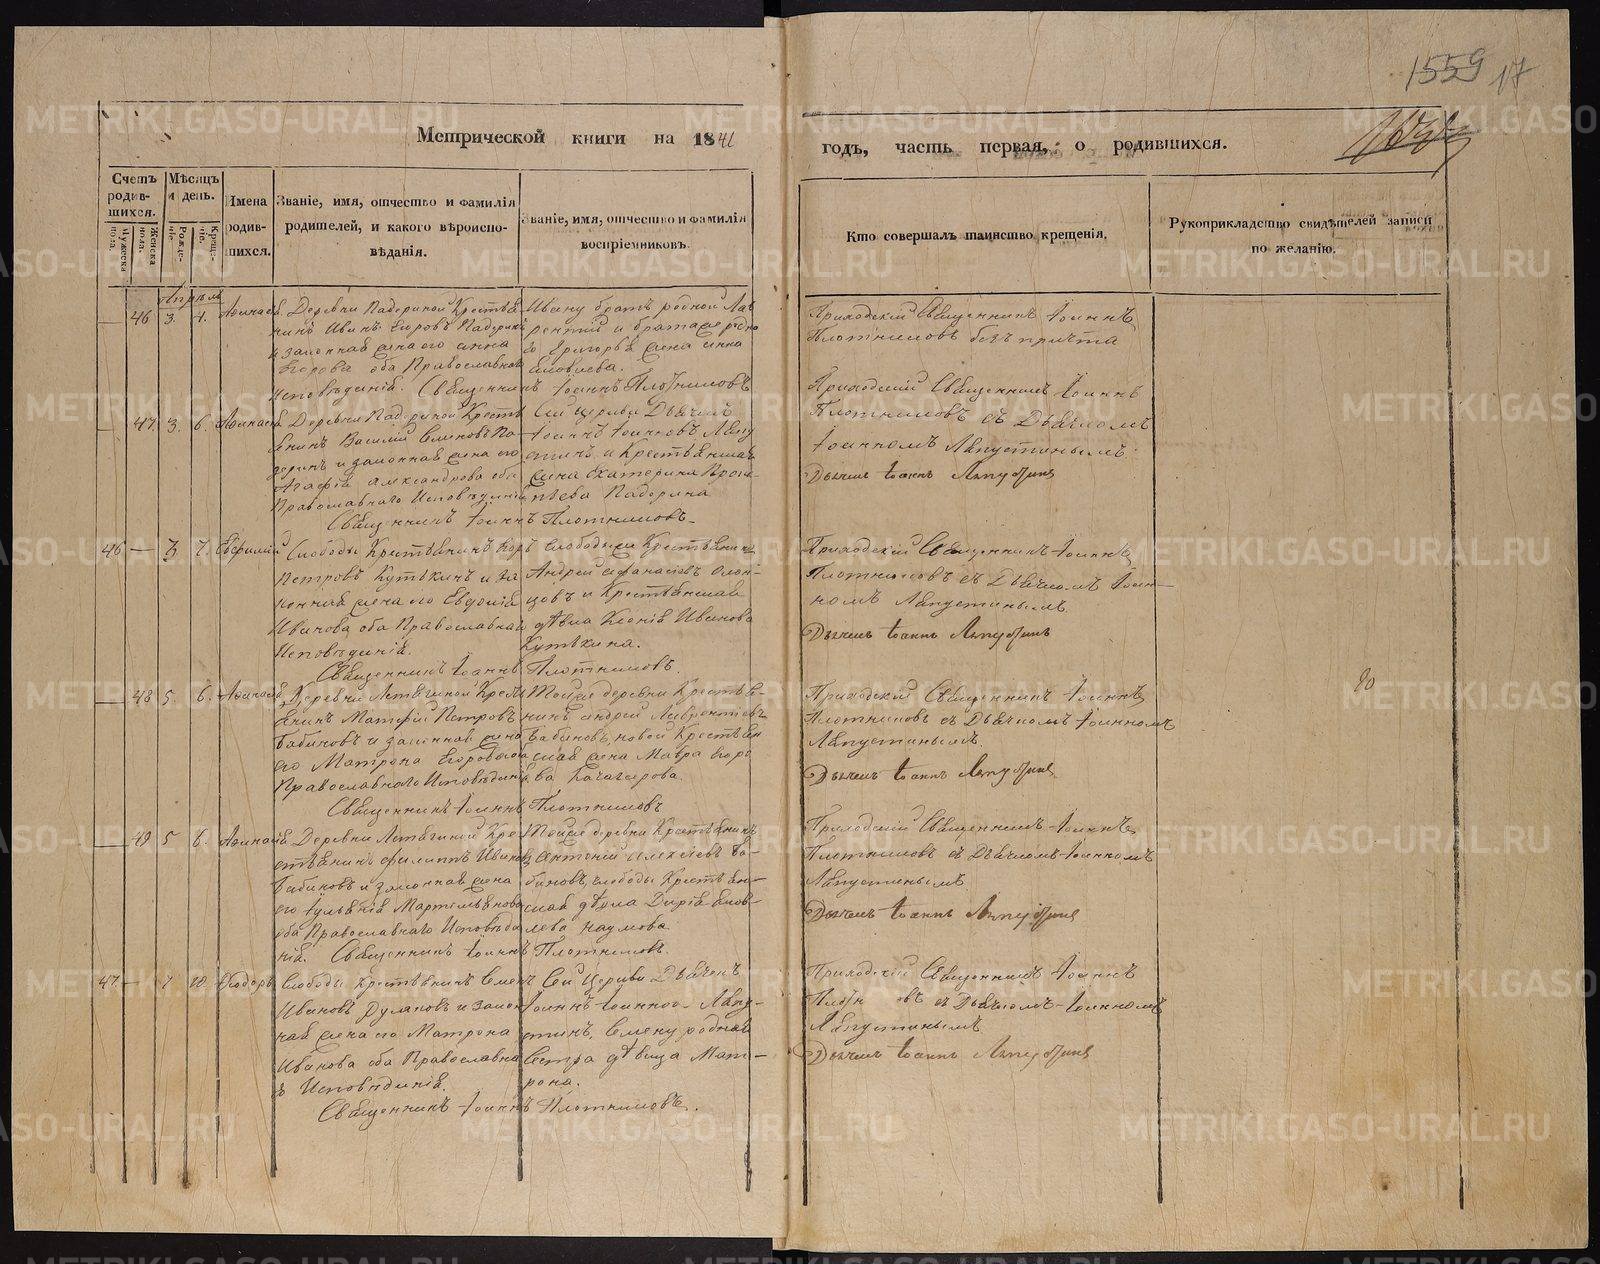 1559 17
Метрической книги на 1841
годъ, часть первая, о родившихся.
Счетъ родив-шихся.
Мужеска пола.
Женска пола.
Мѣсяцъ и день.
Рожде-ніе.
Креще-ніе.
Имена родив-шихся.
Званіе, имя, отчество и фамилія
родителей, и какого вѣроиспо-
вѣданія.
Званіе, имя, отчество и фамилія
воспріемниковъ.
Кто совершалъ таинство крещенія.
Рукоприкладство свидѣтелей записи
по желанію.
Апрѣль
— 46 3. 4.
Деревни Падериной Крестья
нинъ Иванъ Егоровъ Падеринъ
и законная жена его Анна
Егорова оба Православнаго
исповѣданія. Священникъ Іоаннъ Плотниковъ
Ивану братъ родной Лав
рентій и брата же родно
го Григорья жена Анна
Яковлева.
Приходскій Священникъ Іоаннъ
Плотниковъ безъ причта
— 47 3. 6.
Деревни Падериной Кресть
янинъ Василій Семеновъ Па
деринъ и законная жена его
Агафія Александрова оба
Православнаго Исповѣданія
Священникъ Іоаннъ Плотниковъ
Сей церкви Дьячекъ
Іоаннъ Іоанновъ Лапу
стинъ и Крестьянская
жена Екатерина
Падерина
Приходскій Священникъ Іоаннъ
Плотниковъ съ Дьячкомъ
Іоанномъ Лапустинымъ.
Дьячекъ Іоаннъ Лапустинъ
46 — 3. 7. Евфимій
Слободы Крестьянинъ
Петровъ Кутькинъ и за
конная жена его Евдокія
Иванова оба Православнаго
Исповѣданія.
Священникъ Іоаннъ Плотниковъ.
слободы Крестьянинъ
Андрей Афанасьевъ
цовъ и Крестьянская
дѣвка Ксенія Иванова
Кутькина.
Приходскій Священникъ Іоаннъ
Плотниковъ съ Дьячкомъ Іоан-
номъ Лапустинымъ.
Дьячекъ Іоаннъ Лапустинъ
— 48 5. 6.
Деревни Крест
янинъ Матфій Петровъ
Бабиновъ и законная жена
его Матрона Егорова оба
Православнаго Исповѣданія
Священникъ Іоаннъ Плотниковъ
Тойже деревни Крестья-
нинъ Андрей Лаврентьевъ
Бабиновъ, Крестьян
ская жена Мавра Егоро
ва
Приходскій Священникъ Іоаннъ
Плотниковъ съ Дьячкомъ Іоанномъ
Лапустинымъ.
Дьячекъ Іоаннъ Лапустинъ
— 49 5 6.
Деревни Кре
стьянинъ Филиппъ Ивановъ
Бабиновъ и законная жена
его Іульянія Мартемьянова
оба Православнаго Исповѣда
нія. Священникъ Іоаннъ Плотниковъ.
Тойже деревни Крестьянинъ
Антоній Алексѣевъ Ба-
биновъ, слободы Крестьян-
ская дѣвка Дарія Яков-
лева Наумова
Приходскій Священникъ Іоаннъ
Плотниковъ съ Дьячкомъ Іоанномъ
Лапустинымъ
Дьячекъ Іоаннъ Лапустинъ
47 — 7 10. Ѳеодоръ
Слободы Крестьянинъ Семенъ
Ивановъ и закон
ная жена его Матрона
Иванова оба Православна
го Исповѣданія.
Священникъ Іоаннъ Плотниковъ.
Сей Церкви Дьячекъ
Іоаннъ Іоанновъ Лапу-
стинъ, Семену родная
сестра дѣвица Мат-
рона.
Приходскій Священникъ Іоаннъ
Плотниковъ съ Дьячкомъ Іоанномъ
Лапустинымъ
Дьячекъ Іоаннъ Лапустинъ
METRIKI.GASO-URAL.RU